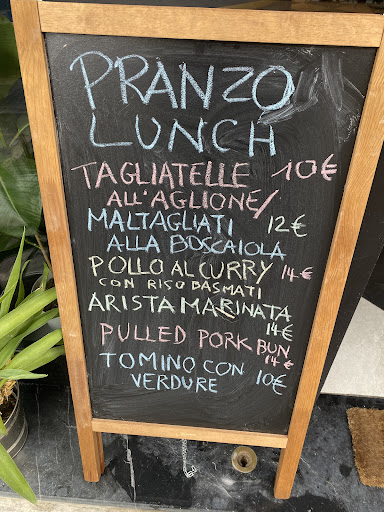 PRANZO
LUNCH
TAGLIATELLE 10€
ALL'AGLIONE/
MALTAGLIATI 12€
ALLA BOSCAIOLA
POLLO AL CURRY 14€
CON RISO BASMATI
ARISTA MARINATA
14€
PULLED PORK BUN
14€
TOMINO CON 10€
VERDURE